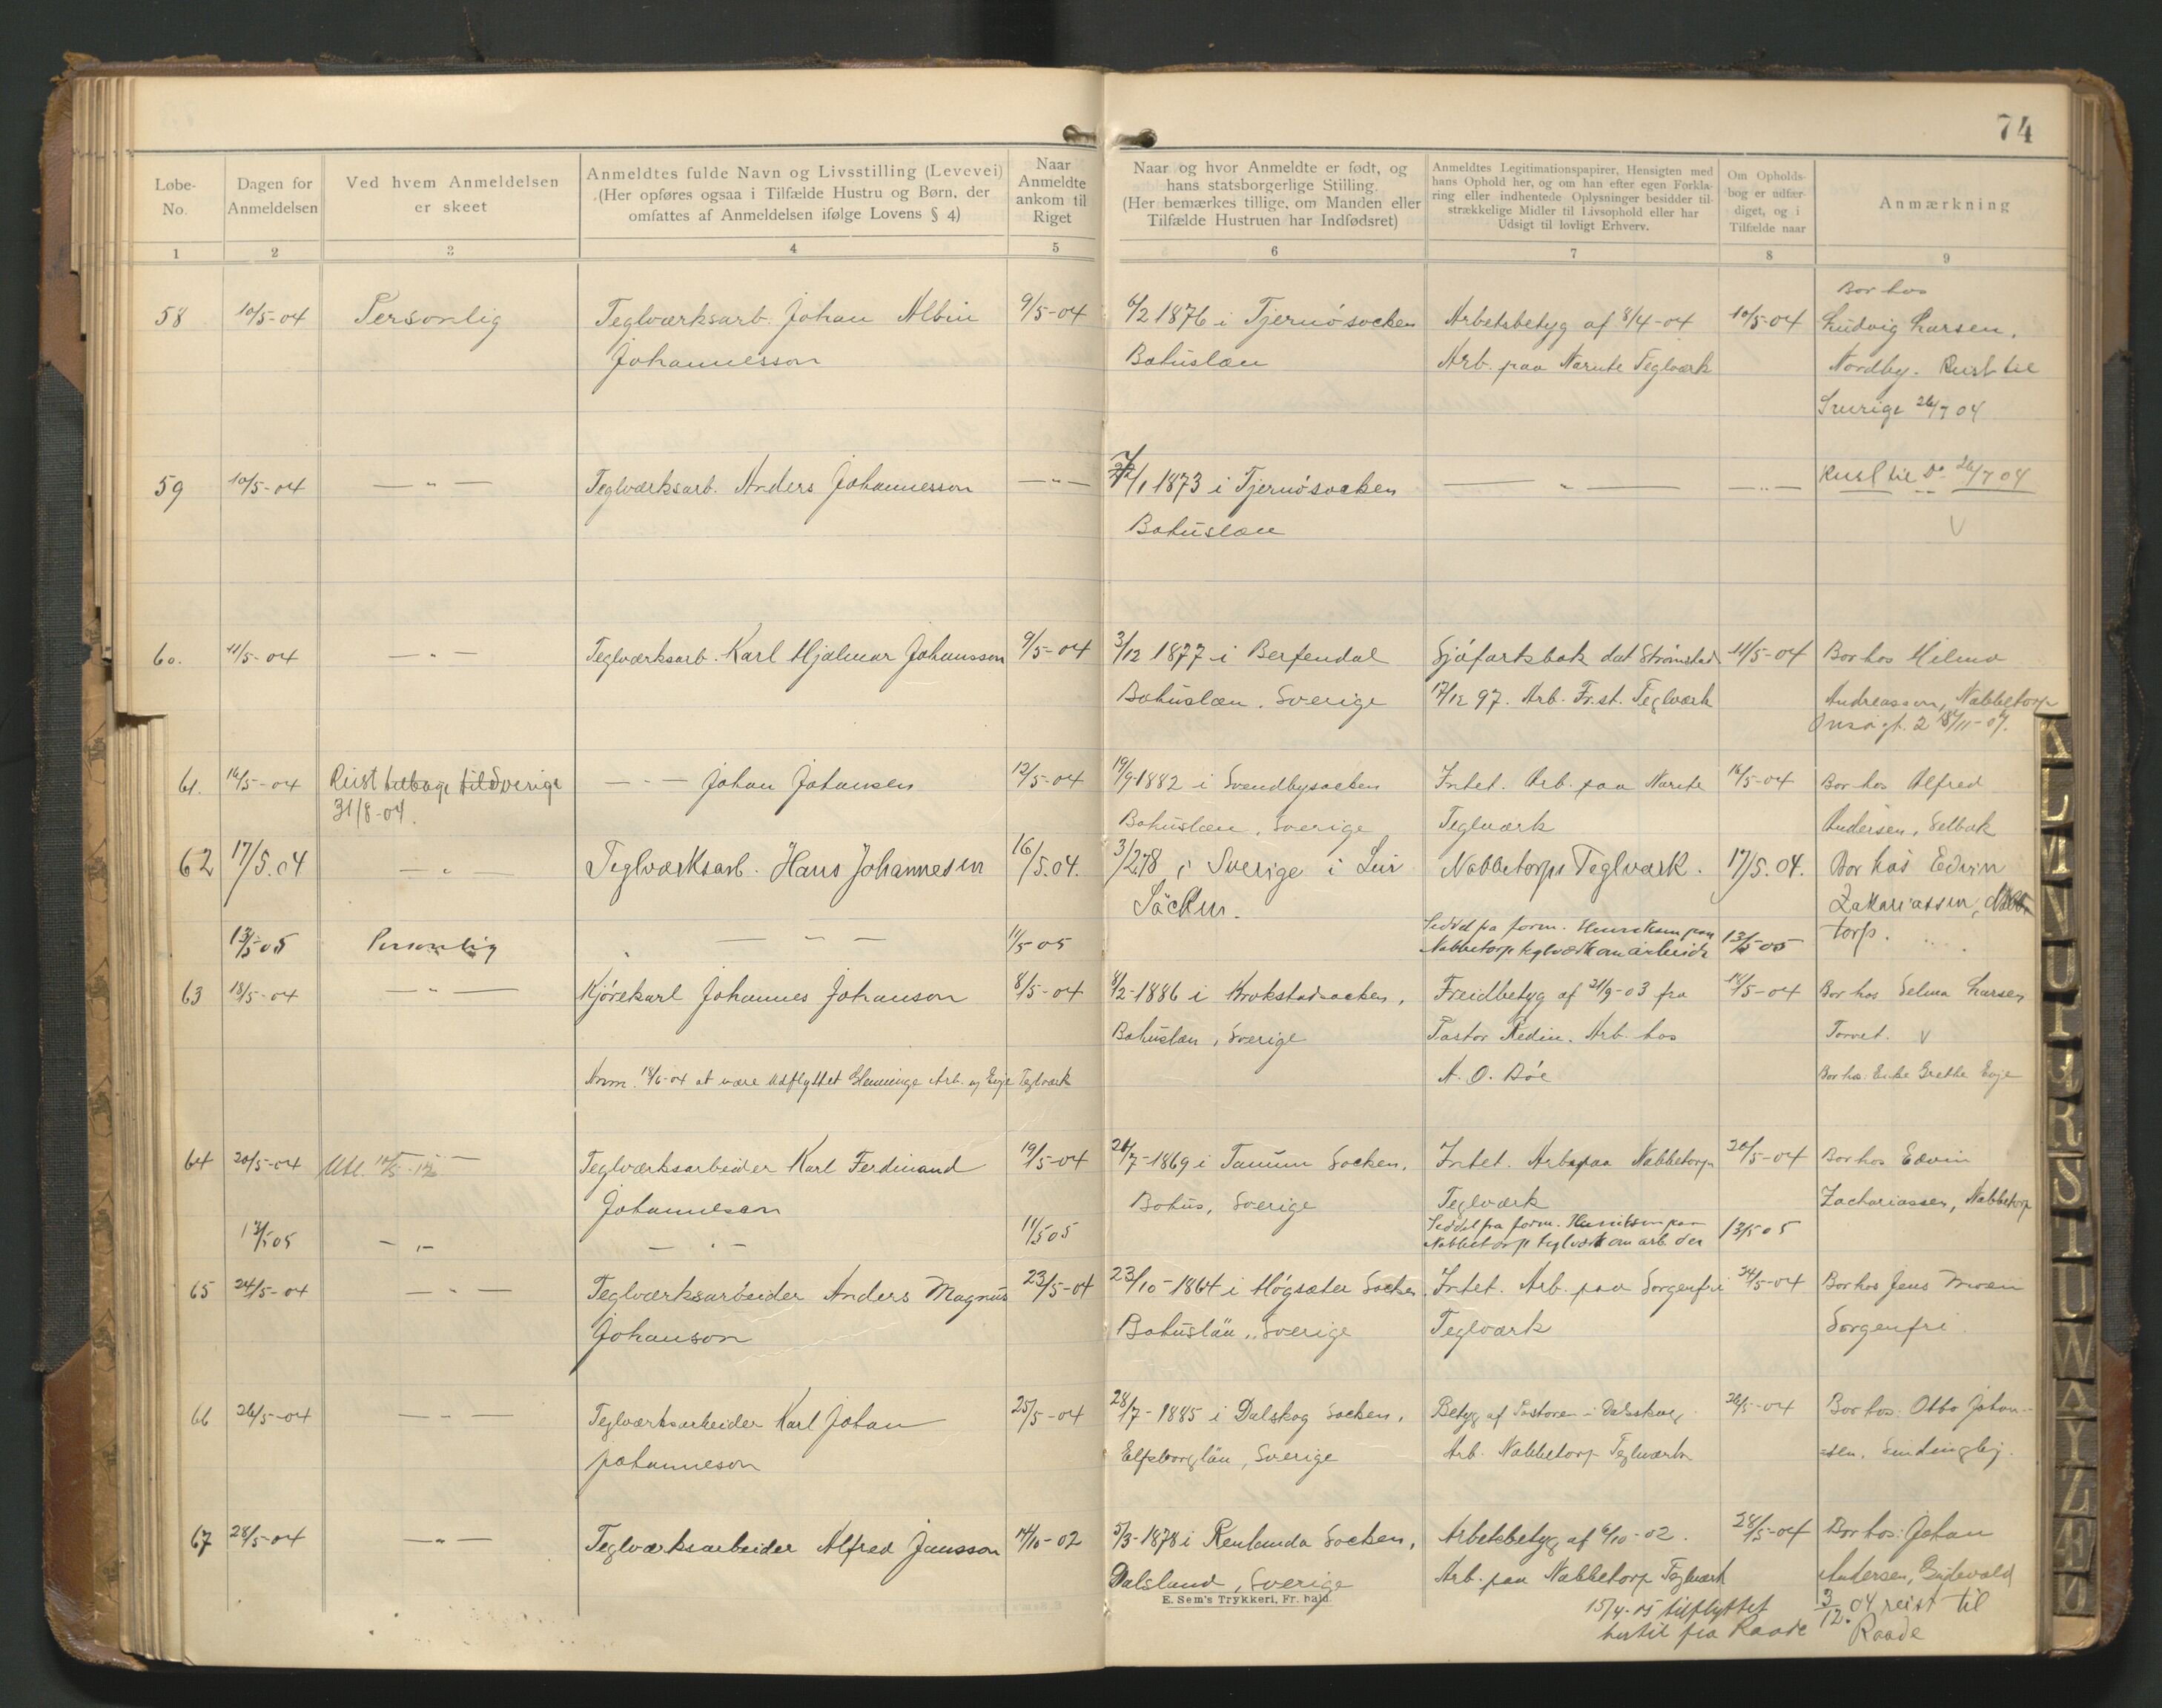 74
Løbe-No.
Dagen for Anmeldelsen
Ved hvem Anmeldelsen er skeet
Anmeldtes fulde Navn og Livsstilling (Levevei)
(Her opføres ogsaa i Tilfælde Hustru og Børn, der
omfattes af Anmeldelsen ifølge Lovens § 4)
Naar Anmeldte ankom til Riget
Naar og hvor Anmeldte er født, og
hans statsborgerlige Stilling.
(Her bemærkes tillige, om Manden eller
Tilfælde Hustruen har Indfødsret)
Anmeldtes Legitimationspapirer, Hensigten med
hans Ophold her, og om han efter egen Forkla-
ring eller indhentede Oplysninger besidder til-
strækkelige Midler til Livsophold eller har
Udsigt til lovligt Erhverv.
Om Opholds-
bog er udfær-
diget, og i
Tilfælde naar
Anmærkning
1 2 3 4 5 6 7 8 9
Bor hos
58 10/5-04 Personlig Teglværksarb. Johan Albin 9/5-04 6/2 1876 i Tjernösocken Arbetsbetyg af 8/4-04 10/5-04 Ludvig Larsen,
Johannesson Bohuslæn Arb. paa Narute Teglværk Nordby. Reist til
Sverige 26/7 04
59 10/5-04 — " — Teglværksarb. Anders Johannesson — " — /1 1873 i Tjernösocken — " — — " — Reist til Do 26/7 04
Bohuslæn V
60. 11/5-04 — " — Teglværksarb. Karl Hjalmar Johansson 9/5-04 3/12 1877 i Berfendal Sjöfartsbok dat Strömstad 11/5-04 Bor hos
Bohuslæn, Sverige 17/12 97. Arb. Fr.st. Teglværk Andreassen, Nabbetorp
61. 16/5-04 Reist tilbage til Sverige — " — Johan Johansen 12/5-04 19/9-1882 i Svendbysocken Intet. Arb. paa Narute 16/5-04 Bor hos Alfred
31/8-04. Bohuslæn, Sverige Teglværk Andersen, Selbak
62 17/5.04 — " — Teglværksarb. Hans Johannesen 16/5.04. 3/2 78 i Sverige i Lur Nabbetorps Teglværk. 17/5.04. Bor hos Edvin
Säcken. Zakariassen,
13/5 05 Personlig — " — 11/5 05 Seddel fra form. Henriksen paa 13/5 05 torp.
Nabbetorp teglværk om arbeide
63 18/5-04 — " — Kjørekarl Johannes Johanson 8/5-04 8/2-1886 i Krokstadsocken, Freidbetyg af 21/9-03 fra 18/5-04 Bor hos Selma Larsen
Bohuslæn, Sverige Pastor Redin. Arb. hos Torvet. V
Anm. 18/6-04 at være udflyttet Glemminge Arb. og Evje Teglværk A. O. Bøe Bor hos Enke Grethe Evje
64 20/5-04 Teglværksarbeider Karl Ferdinand 19/5-04 /7-1869 i Tanum Socken, Intet. Arb. paa Nabbetorp 20/5-04 Bor hos Edvin
Johannesen Bohus, Sverige Teglværk Zachariassen, Nabbetorp
13/5 05 — " — — " — 11/5 05 Seddel fra form. Henriksen paa 13/5 05
Nabbetorp teglværk om arb. der
65 24/5-04 — " — Teglværksarbeider Anders Magnus 23/5-04 23/10-1864 i Högsäter Socken Intet. Arb. paa Sorgenfri 24/5-04 Bor hos Jens Moen
Johanson Bohuslän, Sverige Teglværk Sorgenfri
66 26/5-04 — " — Teglværksarbeider Karl Johan 25/5-04 28/7-1885 i Dalskog Socken, Betyg af Pastoren i Dalskog. 26/5-04 Bor hos: Otto Johan-
Johanneson Elfsborglän, Sverige Arb. Nabbetorp Teglværk =sen,
67 28/5-04 — " — Teglværksarbeider Alfred Jansson 14/10-02 5/3-1878 i Renlanda Socken, Arbetsbetyg af 6/10-02. 28/5-04 Bor hos: Johan
Dalsland, Sverige Arb. paa Nabbetorp Teglværk Andersen, Gudevold
E. Sem's Trykkeri, Fr.hald.
15/4-05 tilflyttet
hertil fra Raade
3/12.04 reist til
Raade
K L M N O P Q R S T U W X Y Z Æ Ø